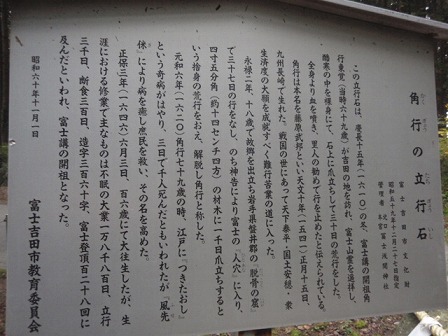 角行の立行石
富士吉田市文化財
昭和五十九年十二月二十七日指定
管理者 北口本宮富士浅間神社
この立行石は、慶長十五年(一六一〇)の冬、富士講の開祖角
行東覚(当時六十九歳)が吉田の地を訪れ、富士山業を遥拝し、
酷寒の中を裸身にて、石上に爪立ちして三十日の荒行をした。
全身より血を噴き、里人の勧めで行を止めたと伝えられている。
角行は本名を藤原武邦といい天文十年(一五四一)正月十五日、
九州長崎で生れた。戦国の世にあって天下泰平・国土安穏・衆
生済度の大願を成就すべく難行苦業の道に入った。
永禄二年、十八歳で故郷を出立ち岩手県盤井郡の「脱骨の窟」
で三十七日の行をなし、のち神告により富士の「人穴」に入り、
四寸五分角(約十四センチ四方)の材木に一千日爪立ちすると
いう捨身の荒行をおえ、解脱し角行と称した。
元和六年(一六二〇)角行七十九歳の時、江戸に「つきたおし」
という奇病がはやり、三日で千人死んだともいわれたが「風先
侎」により病を癒し庶民を救い、その名を高めた。
正保三年(一六四六)六月三日、百六歳にて大往生したが、生
涯における修業で主なものは不眠の大業一万八千八百日、立行
三千日、断食三百日、造字三百六十字、富士登頂百二十八回に
及んだといわれ、富士講の開祖となった。
昭和六十年十一月一日
富士吉田市教育委員会